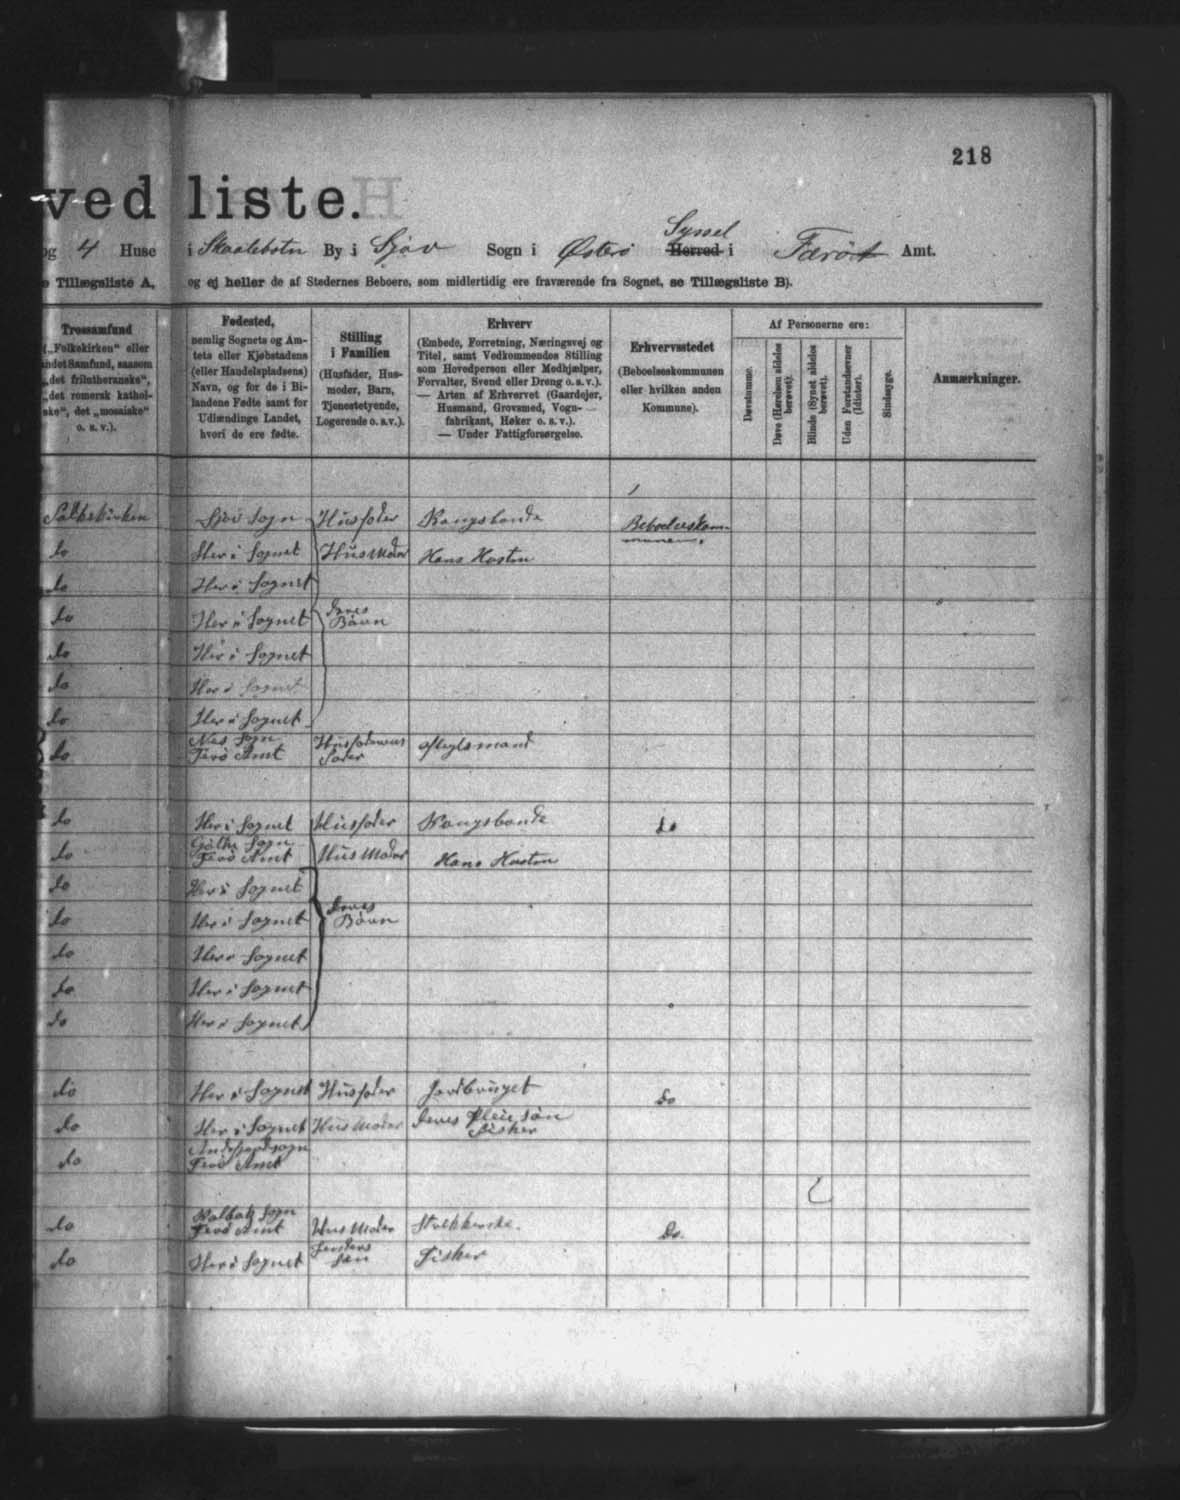 218
ved liste.
og 4 Huse i Skaalebotn By i Sjov Sogn i Østerö Syssel Herred i Færö Amt.
e Tillægsliste A, og ej heller de af Stedernes Beboere, som midlertidig ere fraværende fra Sognet, se Tillægsliste B).
Trossamfund
(„Folkekirken“ eller
andet Samfund, saasom
„det frilutheranske“,
„det romersk kathol-
ske“, det „mosaiske“
o. s. v.).
Fødested,
nemlig Sognets og Am-
tets eller Kjøbstadens
(eller Handelspladsens)
Navn, og for de i Bi-
landene Fødte samt for
Udlændinge Landet,
hvori de ere fødte.
Stilling
i Familien
(Husfader, Hus-
moder, Barn,
Tjenestetyende,
Logerende o. s. v.).
Erhverv
(Embede, Forretning, Næringsvej og
Titel, samt Vedkommendes Stilling
som Hovedperson eller Medhjælper,
Forvalter, Svend eller Dreng o. s. v.).
— Arten af Erhvervet (Gaardejer,
Husmand, Grovsmed, Vogn-
fabrikant, Høker o. s. v.).
— Under Fattigforsørgelse.
Erhvervsstedet
(Beboelseskommunen
eller hvilken anden
Kommune).
Af Personerne ere:
Døvstumme.
Døve (Hørelsen aldeles
berøvet).
Blinde (Synet aldeles
berøvet).
Uden Forstandsevner
(Idioter).
Sindssyge.
Anmærkninger.
Folkekirken Sjov Sogn Husfader Kongsbonde Beboelseskom-
munen.
do Her i Sognet Husmoder Hans Hustru
do Her i Sognet
do Her i Sognet deres
Börn
do Her i Sognet
do Her i Sognet
do Her i Sognet
do Nes Sogn
Ferö Amt Husfaderens
Fader
do Her i Sognet Husfader Kongsbonde do
do Göthe Sogn
Ferö Amt Husmoder Hans Hustru
do Her i Sognet
do Her i Sognet deres
Börn
do Her i Sognet
do Her i Sognet
do Her i Sognet
do Her i Sognet Husfader Jordbruget do
do Her i Sognet Husmoder deres Pleiesön
Fisker
do Sogn
Ferö Amt
do Kolbak Sogn
Ferö Amt Husmoder do
do Her i Sognet
Sön Fisker